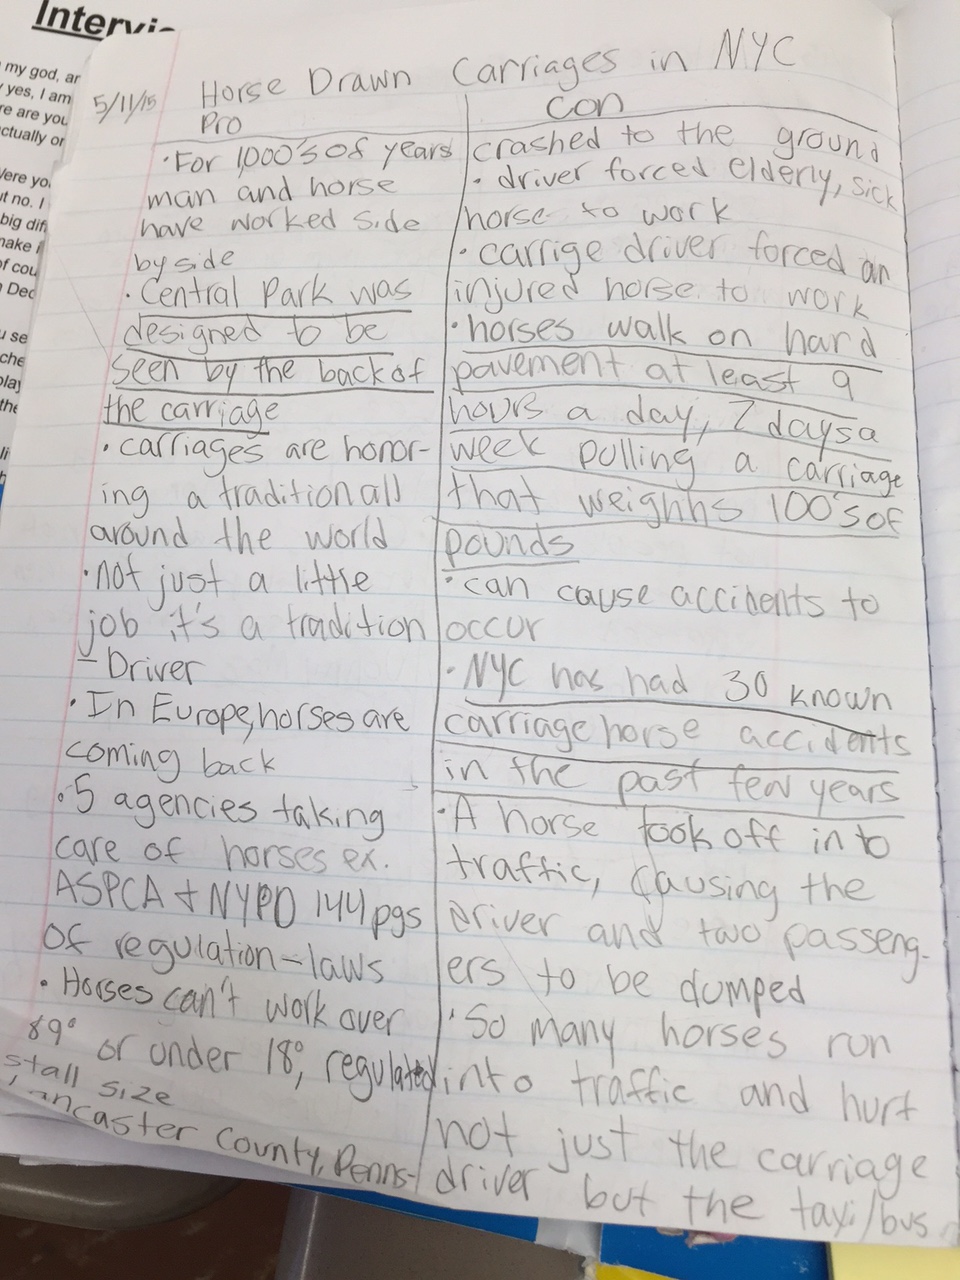 my god, ar
yes, I am
re are you
ctually or
no. I
big dif
of cou
Dec
5/11/15
Horse Drawn Carriages in NYC
Pro
· For 1,000's of years
man and horse
have worked side
by side
· Central Park was
designed to be
seen by the back of
the carriage
· carriages are honor-
ing a tradition all
around the world
· not just a little
job it's a tradition
- Driver
· In Europe, horses are
coming back
· 5 agencies taking
care of horses ex.
ASPCA + NYPD 144 pgs
of regulation-laws
· Horses can't work over
89° or under 18°, regulated
stall size
Lancaster County, Penns-
Con
crashed to the ground
· driver forced elderly, sick
horse to work
· carrige driver forced an
injured horse to work
· horses walk on hard
pavement at least 9
hours a day, 7 days a
week pulling a carriage
that weighhs 100's of
pounds
· can cause accidents to
occur
· NYC has had 30 known
carriage horse accidents
in the past few years
· A horse took off in to
traffic, causing the
driver and two passeng-
ers to be dumped
· So many horses run
into traffic and hurt
not just the carriage
driver but the taxi/bus